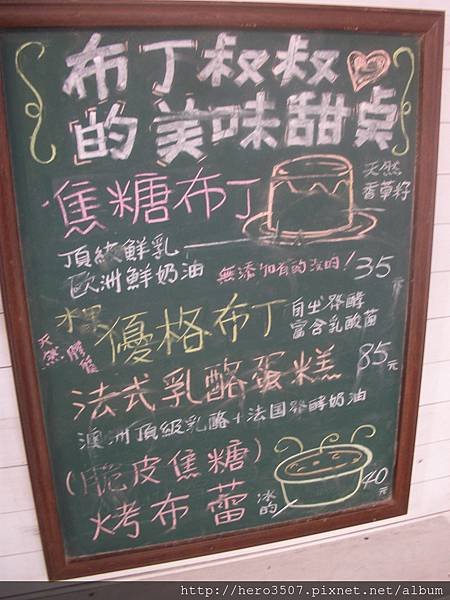 布丁叔叔
的美味甜点
焦糖布丁
天然
香草籽
頂級鮮乳
歐洲鮮奶油
無添加有的沒的！35元
水果
天然膠質
優格布丁
自出發酵
富含乳酸菌
法式乳酪蛋糕 85元
澳洲頂級乳酪+法国發酵奶油
(脆皮焦糖)
烤布蕾
冰的
40元
http://hero3507.pixnet.net/album